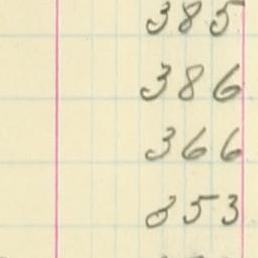 385
386
366
853